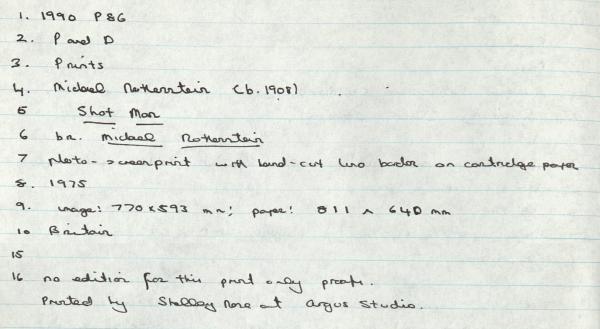 1. 1990 P86
2. P and D
3. Prints
4. Michael Rothenstein (b. 1908)
5 Shot Man
6 br. Michael Rothenstein
7 photo-screenprint with hand-cut lino border on cartridge paper
8. 1975
9. image: 770 x 593 mm; paper: 811 x 640 mm
10 Britain
15
16 no edition for this print only proofs.
Printed by Shelley Rose at Argus Studio.